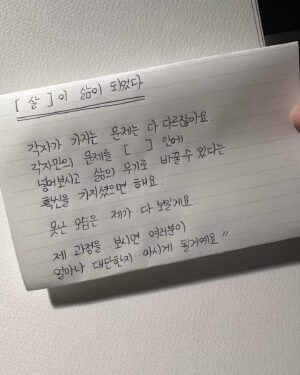 [ 살 ] 이 삶이 되었다
각자가 가지는 문제는 다 다르잖아요.
각자만의 문제를 [   ] 안에
넣어보시고 삶의 무기로 바꿀 수 있다는
확신을 가지셨으면 해요.
못난 모습은 제가 다 보일게요.
제 과정을 보시면 여러분이
얼마나 대단한지 아시게 될거예요!!